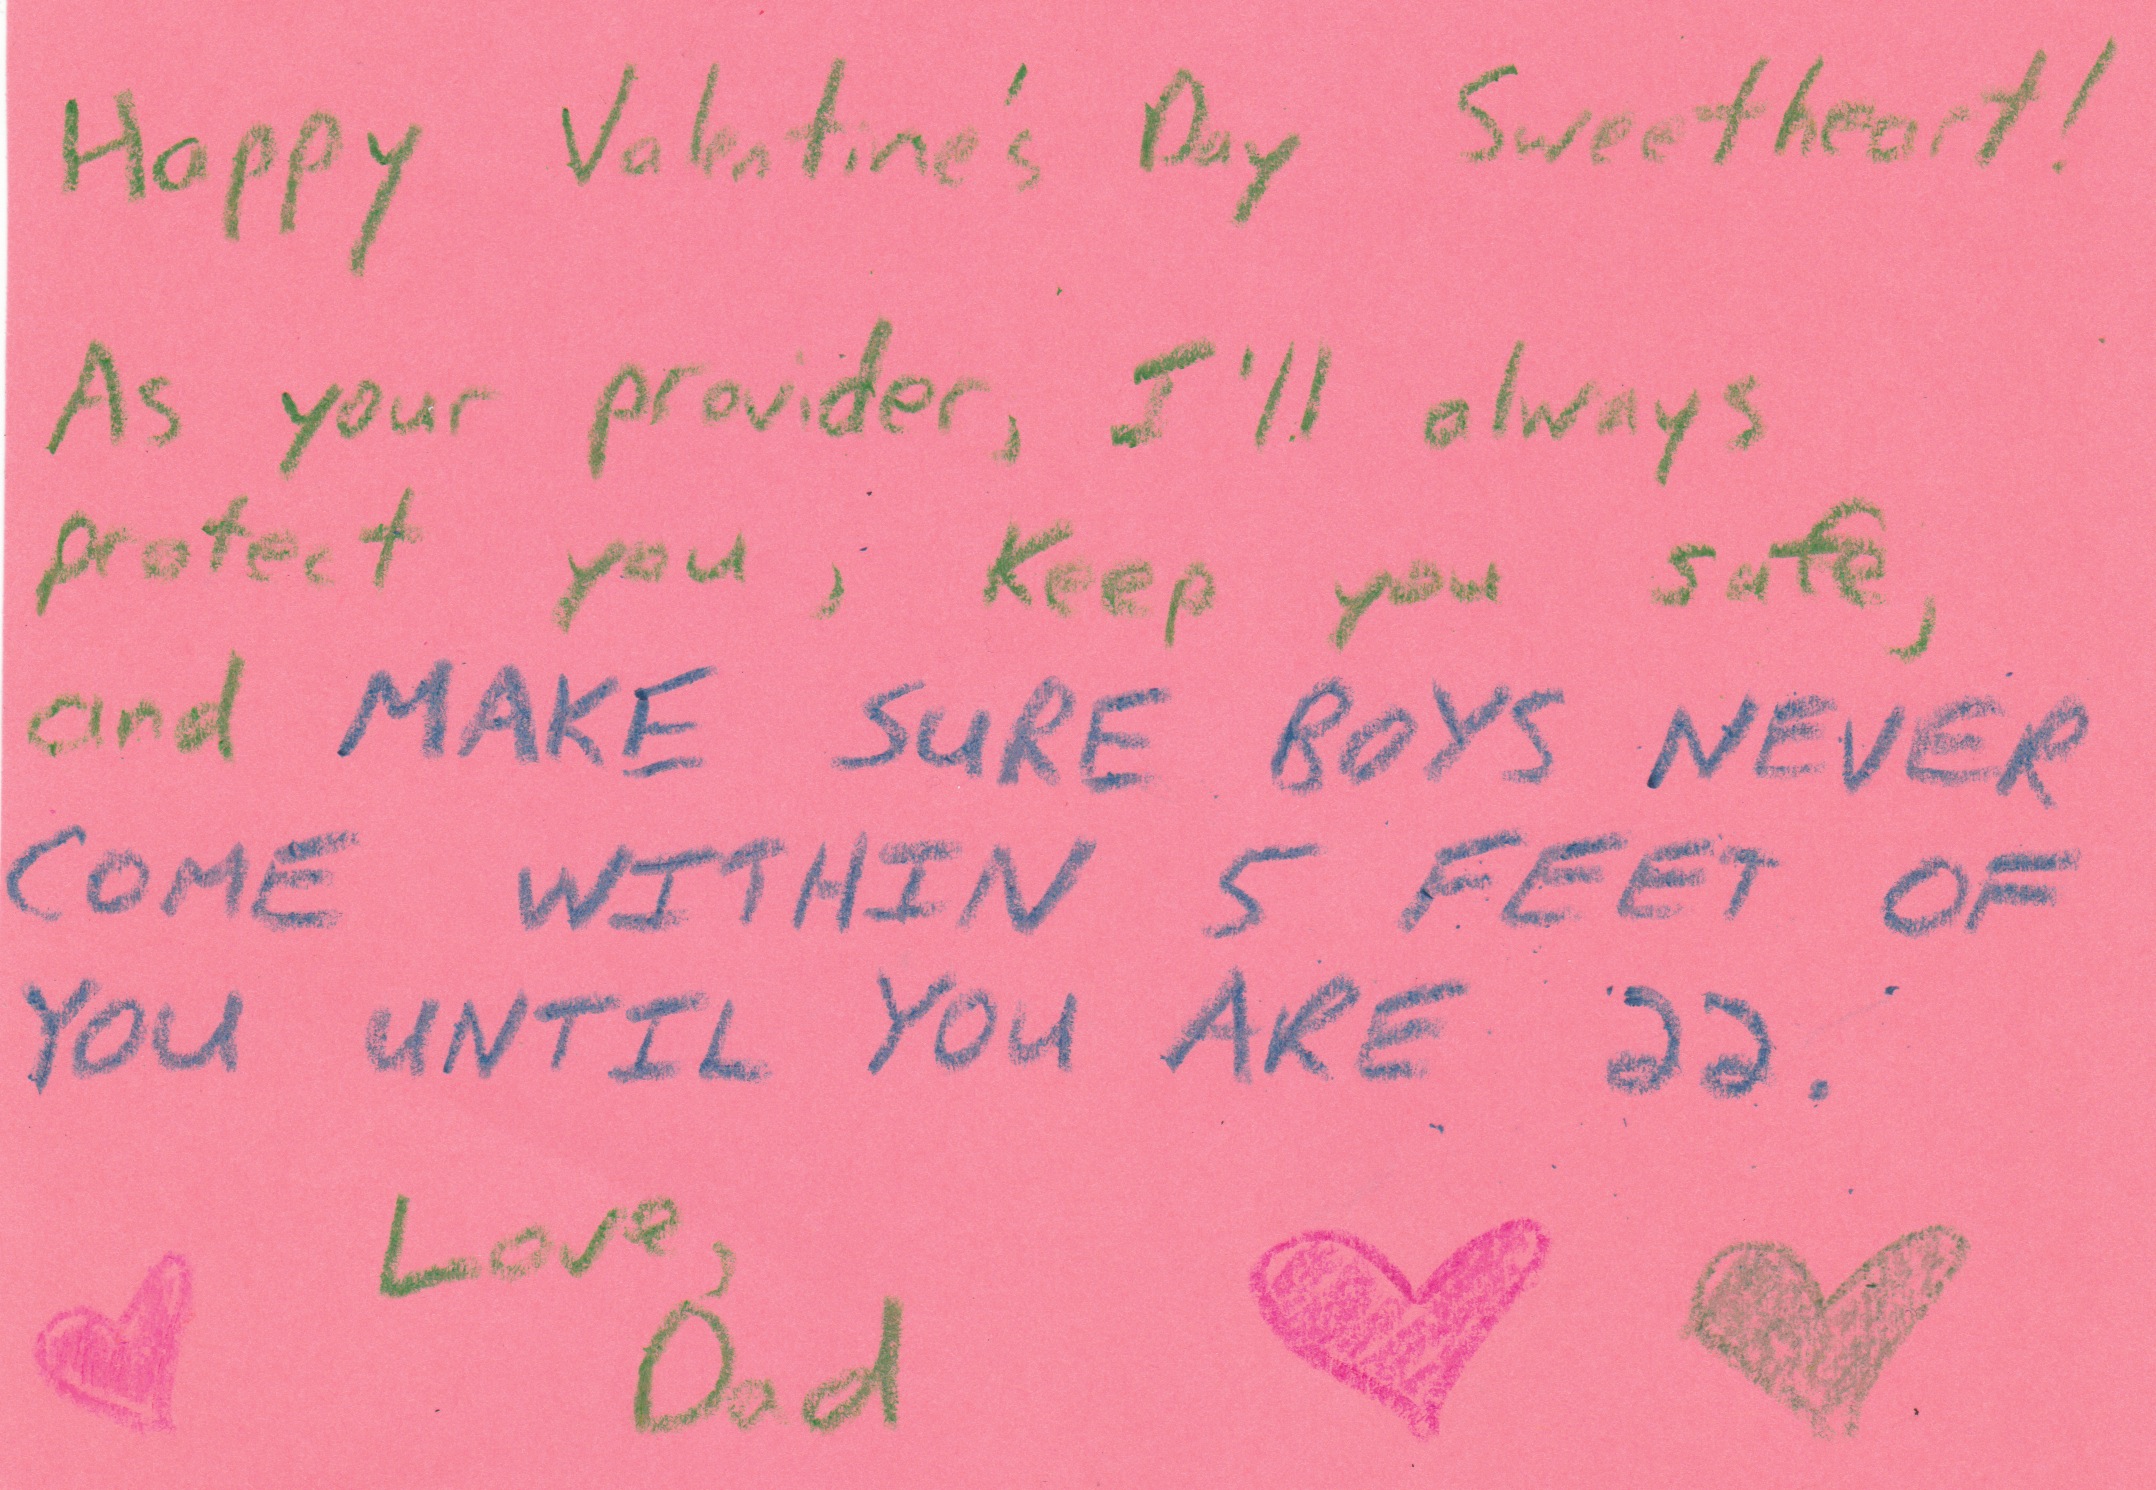 Happy Valentine's Day Sweetheart!
As your provider, I'll always
protect you, keep you safe,
and MAKE SURE BOYS NEVER
COME WITHIN 5 FEET OF
YOU UNTIL YOU ARE 22.
Love,
Dad